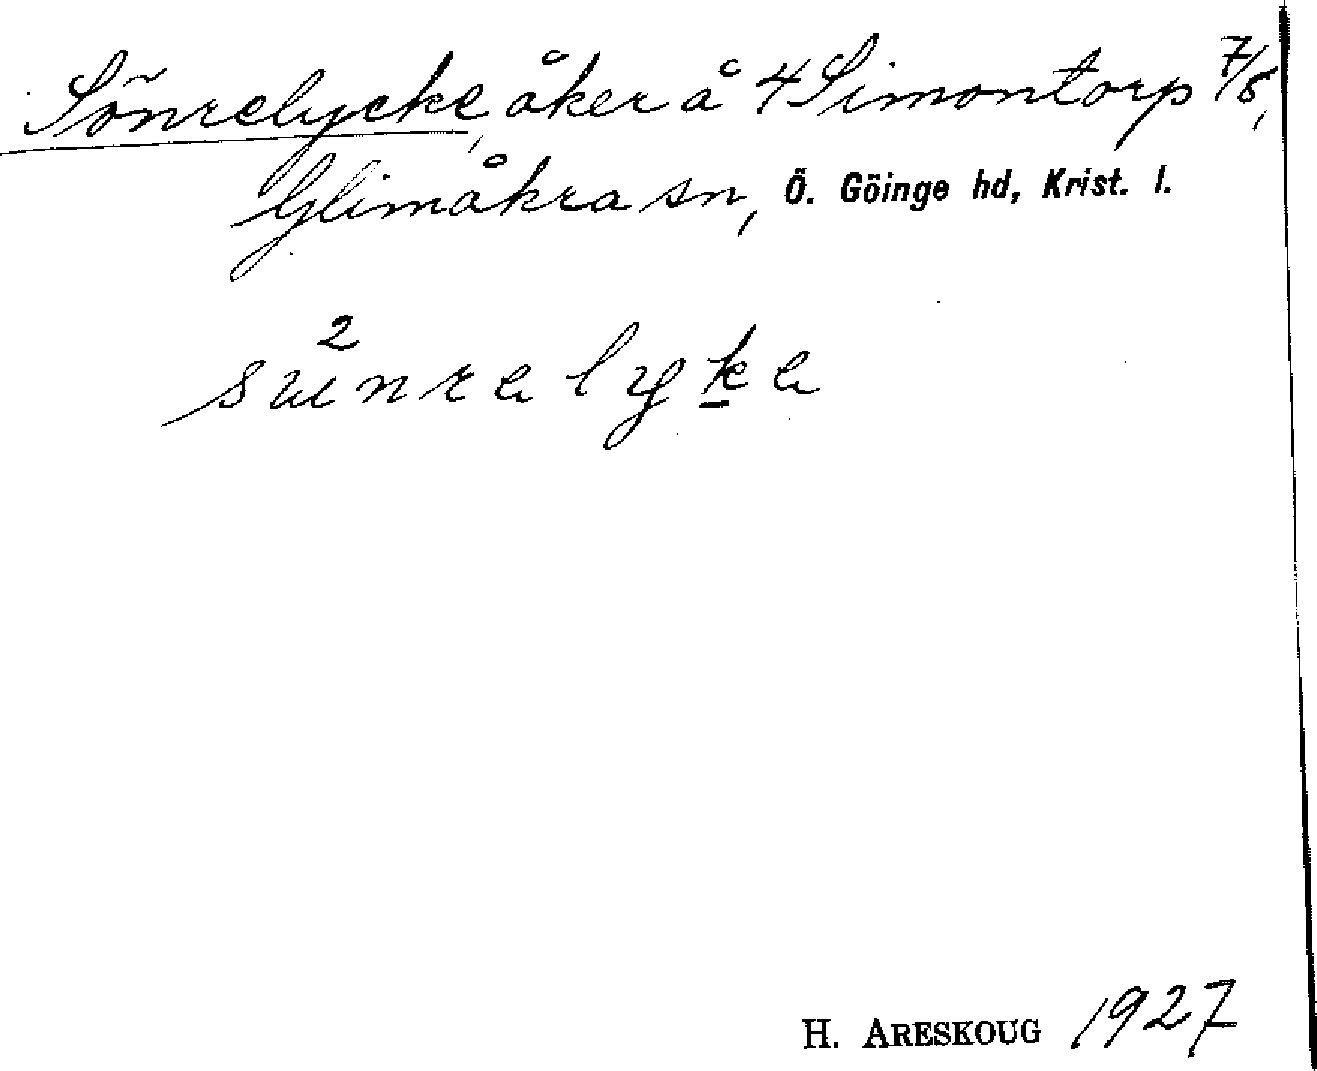 Sönrelycke, åker å 4 Simontorp 7/8,
Glimåkra sn, Ö. Göinge hd, Krist. l.
H. ARESKOUG 1927